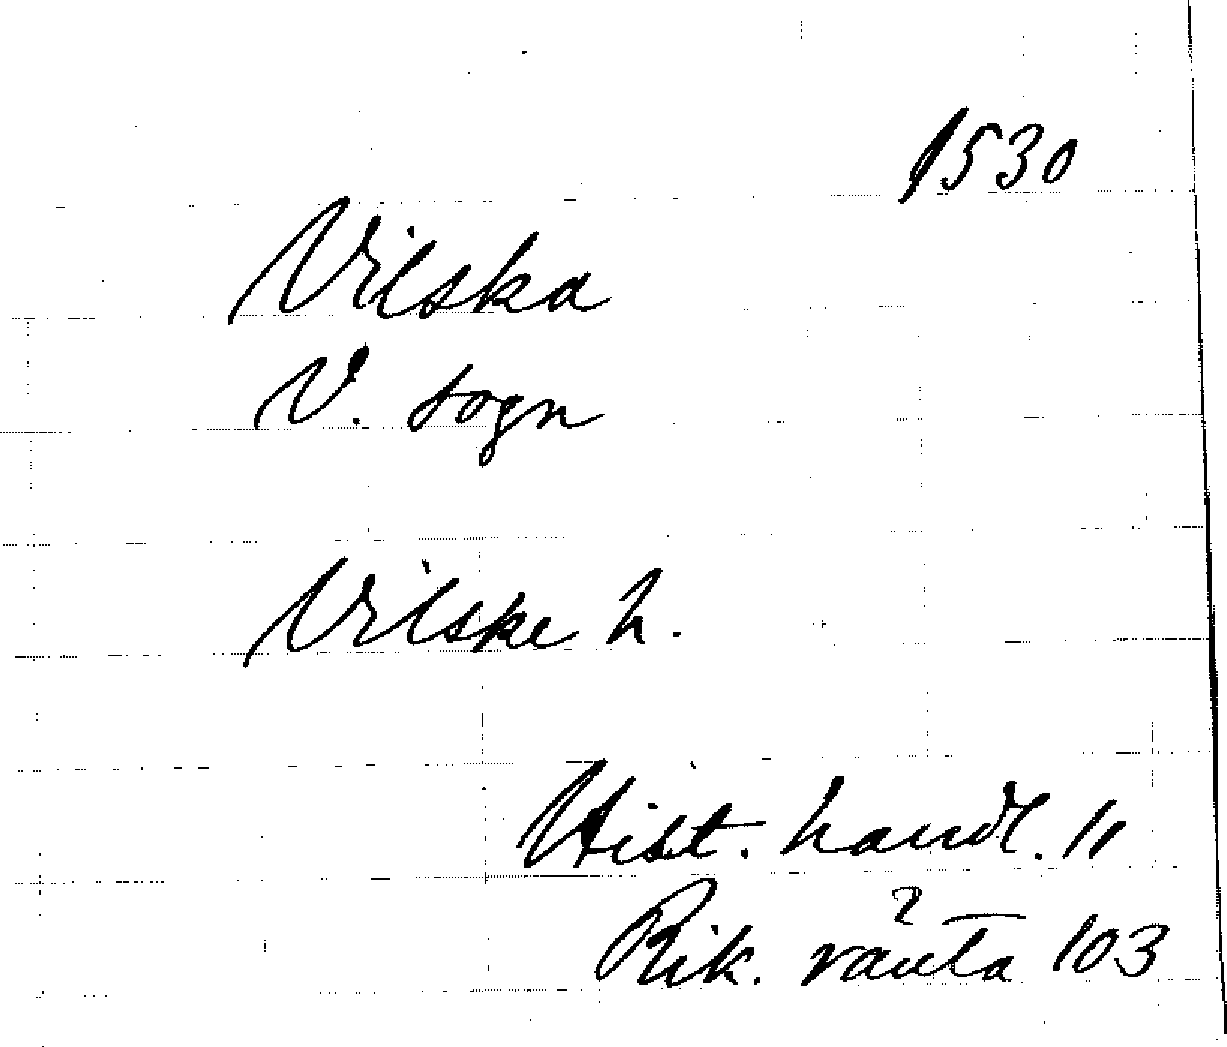 1530
Vilska
V. sogn
Vilske h.
Hist. handl. 11
Rik. ränta 103